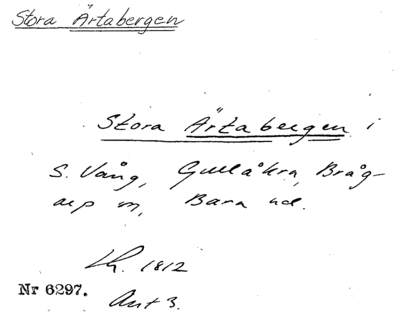 Stora Ärtabergen
Stora Ärtabergen i
S. Vång, Gullåkra, Bråg-
arp sn, Bara hd.
Lh. 1812
Nr 6297.
Ant 3.